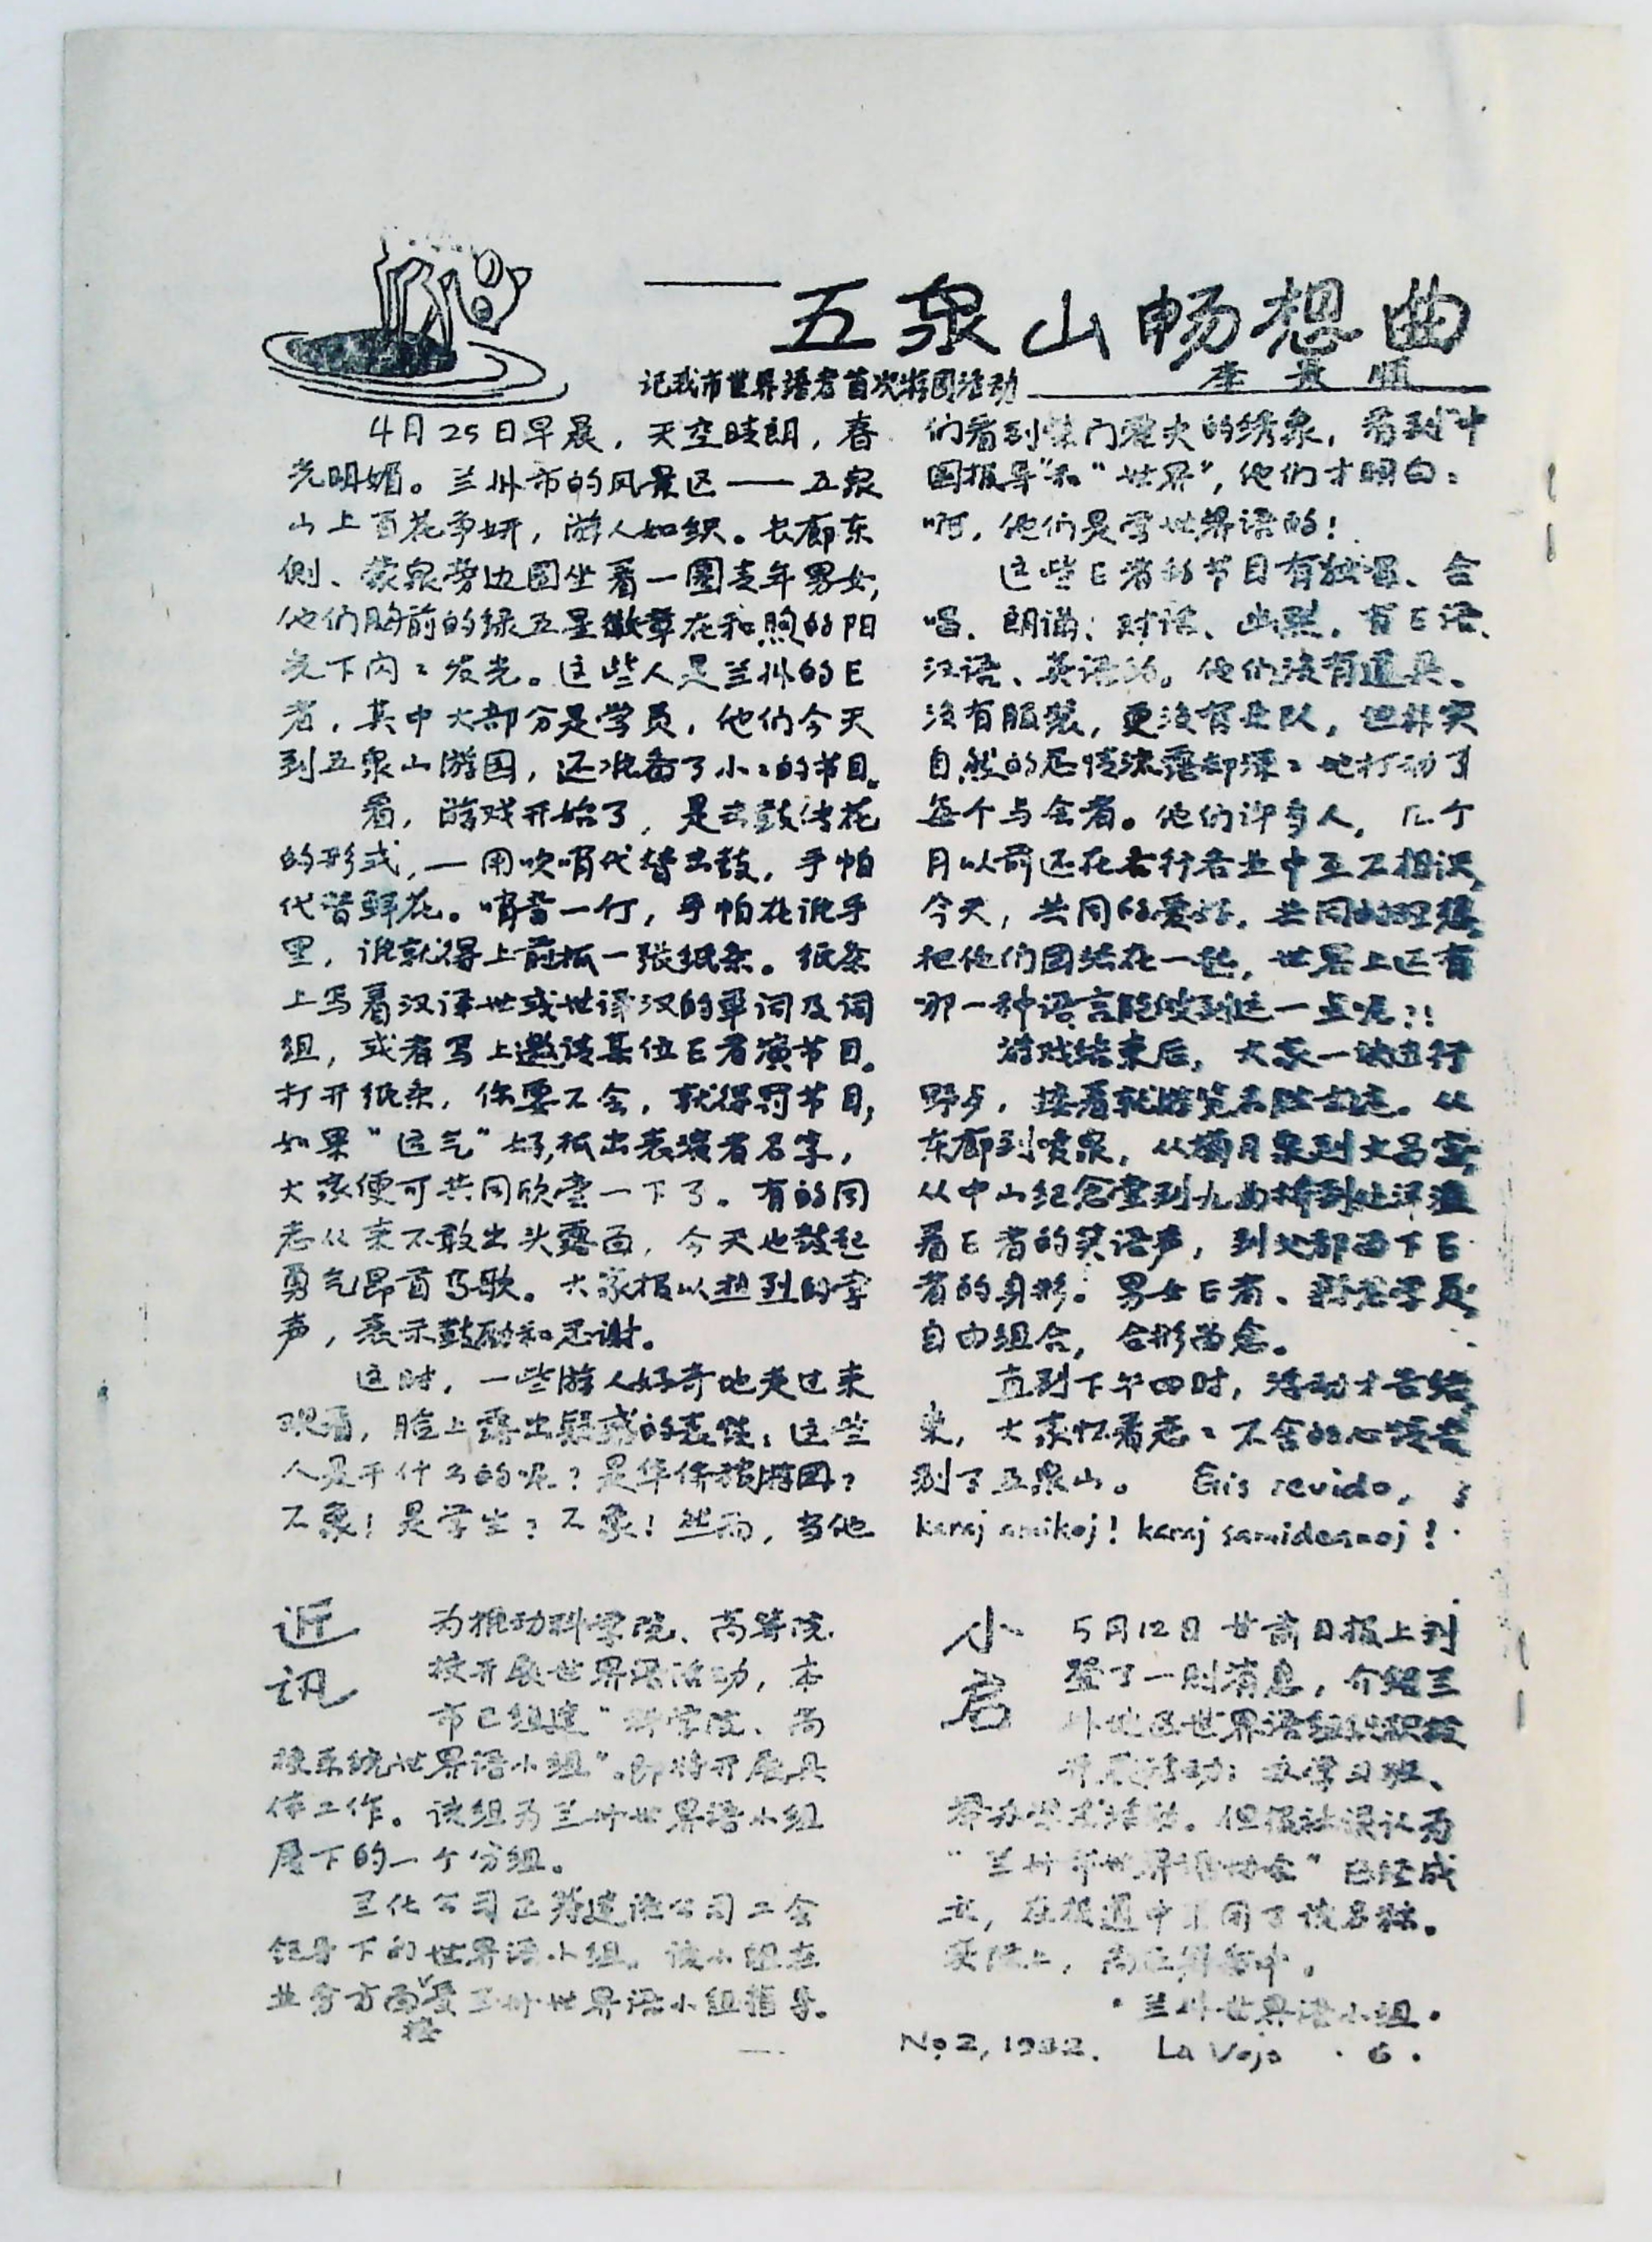 ——五泉山畅想曲
记我市世界语者首次游园活动
李 景 顺
4月25日早晨，天空晴朗，春
光明媚。兰州市的风景区——五泉
山上百花争妍，游人如织。长廊东
侧、蒙泉旁边围坐着一圈青年男女，
他们胸前的绿五星徽章在和煦的阳
光下闪〻发光。这些人是兰州的E
者，其中大部分是学员，他们今天
到五泉山游园，还准备了小〻的节目。
看，游戏开始了，是击鼓传花
的形式，—用吹哨代替击鼓，手帕
代替鲜花。哨音一停，手帕在谁手
里，谁就得上前抓一张纸条。纸条
上写着汉译世或世译汉的单词及词
组，或者写上邀请某位E者演节目。
打开纸条，你要不会，就得罚节目，
如果“运气”好，抓出表演者名字，
大家便可共同欣赏一下了。有的同
志从来不敢出头露面，今天也鼓起
勇气昂首高歌。大家报以热烈的掌
声，表示鼓励和感谢。
这时，一些游人好奇地走过来
观看，脸上露出疑惑的表情：这些
人是干什么的呢？是华侨旅游团？
不象！是学生？不象！然而，当他
们看到柴门霍夫的绣象，看到“中
国报导”和“世界”，他们才明白：
啊，他们是学世界语的！
这些E者的节目有独唱、合
唱、朗诵；对话、幽默。有E语、
汉语、英语的。他们没有道具、
没有服装，更没有乐队，但朴实
自然的感情流露却深〻地打动了
每个与会者。他们许多人，几个
月以前还在各行各业中互不相识，
今天，共同的爱好，共同的理想，
把他们团结在一起，世界上还有
哪一种语言能做到这一点呢？！
游戏结束后，大家一块进行
野步，接着就游览名胜古迹。从
东廊到喷泉，从摸月泉到文昌宫，
从中山纪念堂到九曲桥到处洋溢
着E者的笑语声，到处都留下E
者的身影。男女E者、新老学员，
自由组合，合影留念。
直到下午四时，活动才告结
束，大家怀着恋〻不舍的心情告
别了五泉山。 Ĝis revido,
karaj amikoj! karaj samideanoj!
近讯
为推动科学院、高等院
校开展世界语活动，本
市已组建“科学院、高
校系统世界语小组”。即将开展具
体工作。该组为兰州世界语小组
属下的一个分组。
兰化公司正筹建该公司工会
领导下的世界语小组。该小组在
业务方面接受兰州世界语小组指导。
小启
5月12日甘肃日报上刊
登了一则消息，介绍兰
州地区世界语组织积极
开展活动：办学习班、
举办学术活动。但报社误认为
“兰州市世界语协会”已经成
立，在报道中采用了该名称。
实际上，尚在筹备中。
·兰州世界语小组·
No.2, 1982. La Vojo ·6·